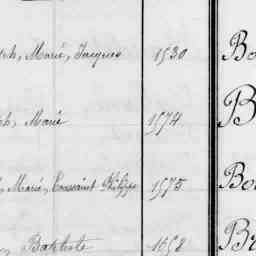 ph, Marie, Jacques 1530 Bo
ph, Marie 1574 B
, Marie, Toussaint Philippe 1575 Bo
, Baptiste 1658 Br